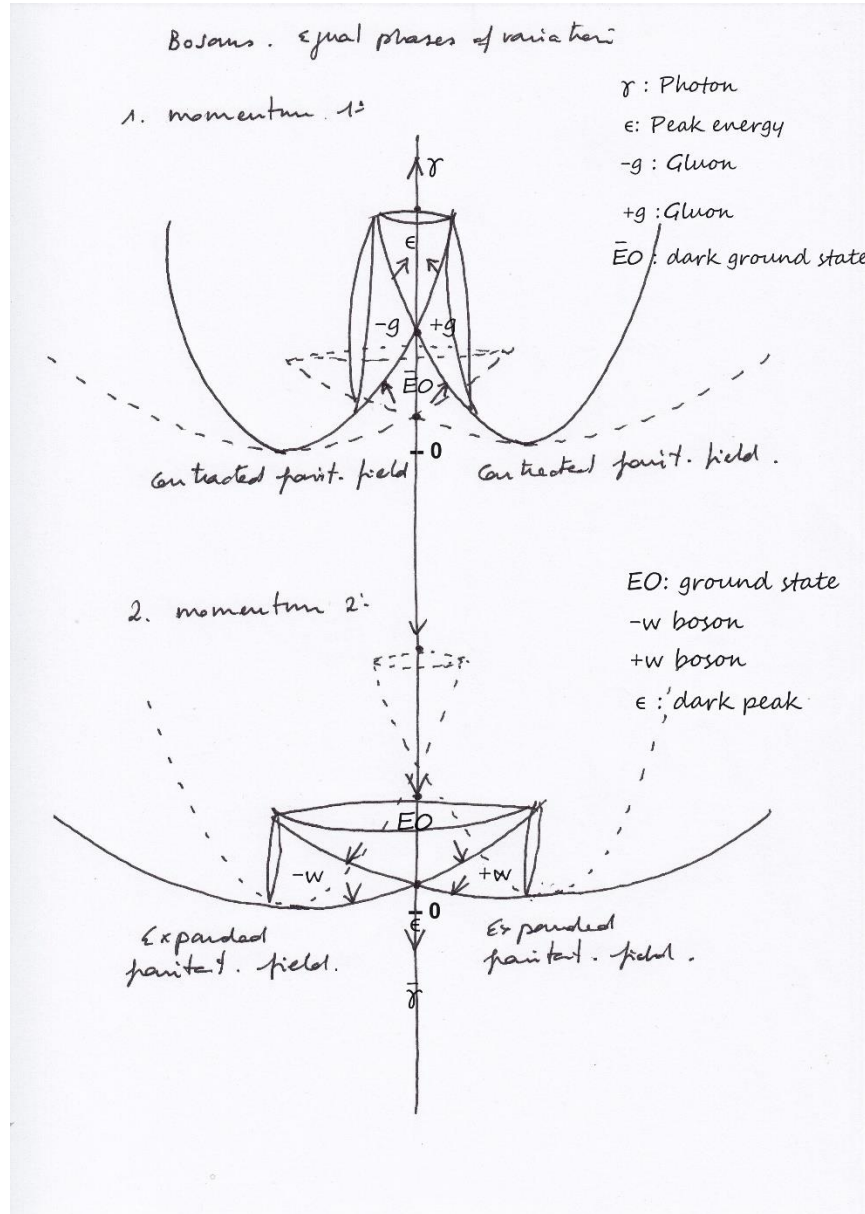 Bosons. Equal phases of variation
1. momentum 1:
γ : Photon
ϵ: Peak energy
-g : Gluon
+g : Gluon
ĒO : dark ground state
γ
ϵ
-g +g
ĒO
0
Contracted field
Contracted field.
2. momentum 2:
EO: ground state
-w boson
+w boson
ϵ : dark peak
EO
-w +w
0
ϵ
Expanded
field.
Expanded
field.
γ̄